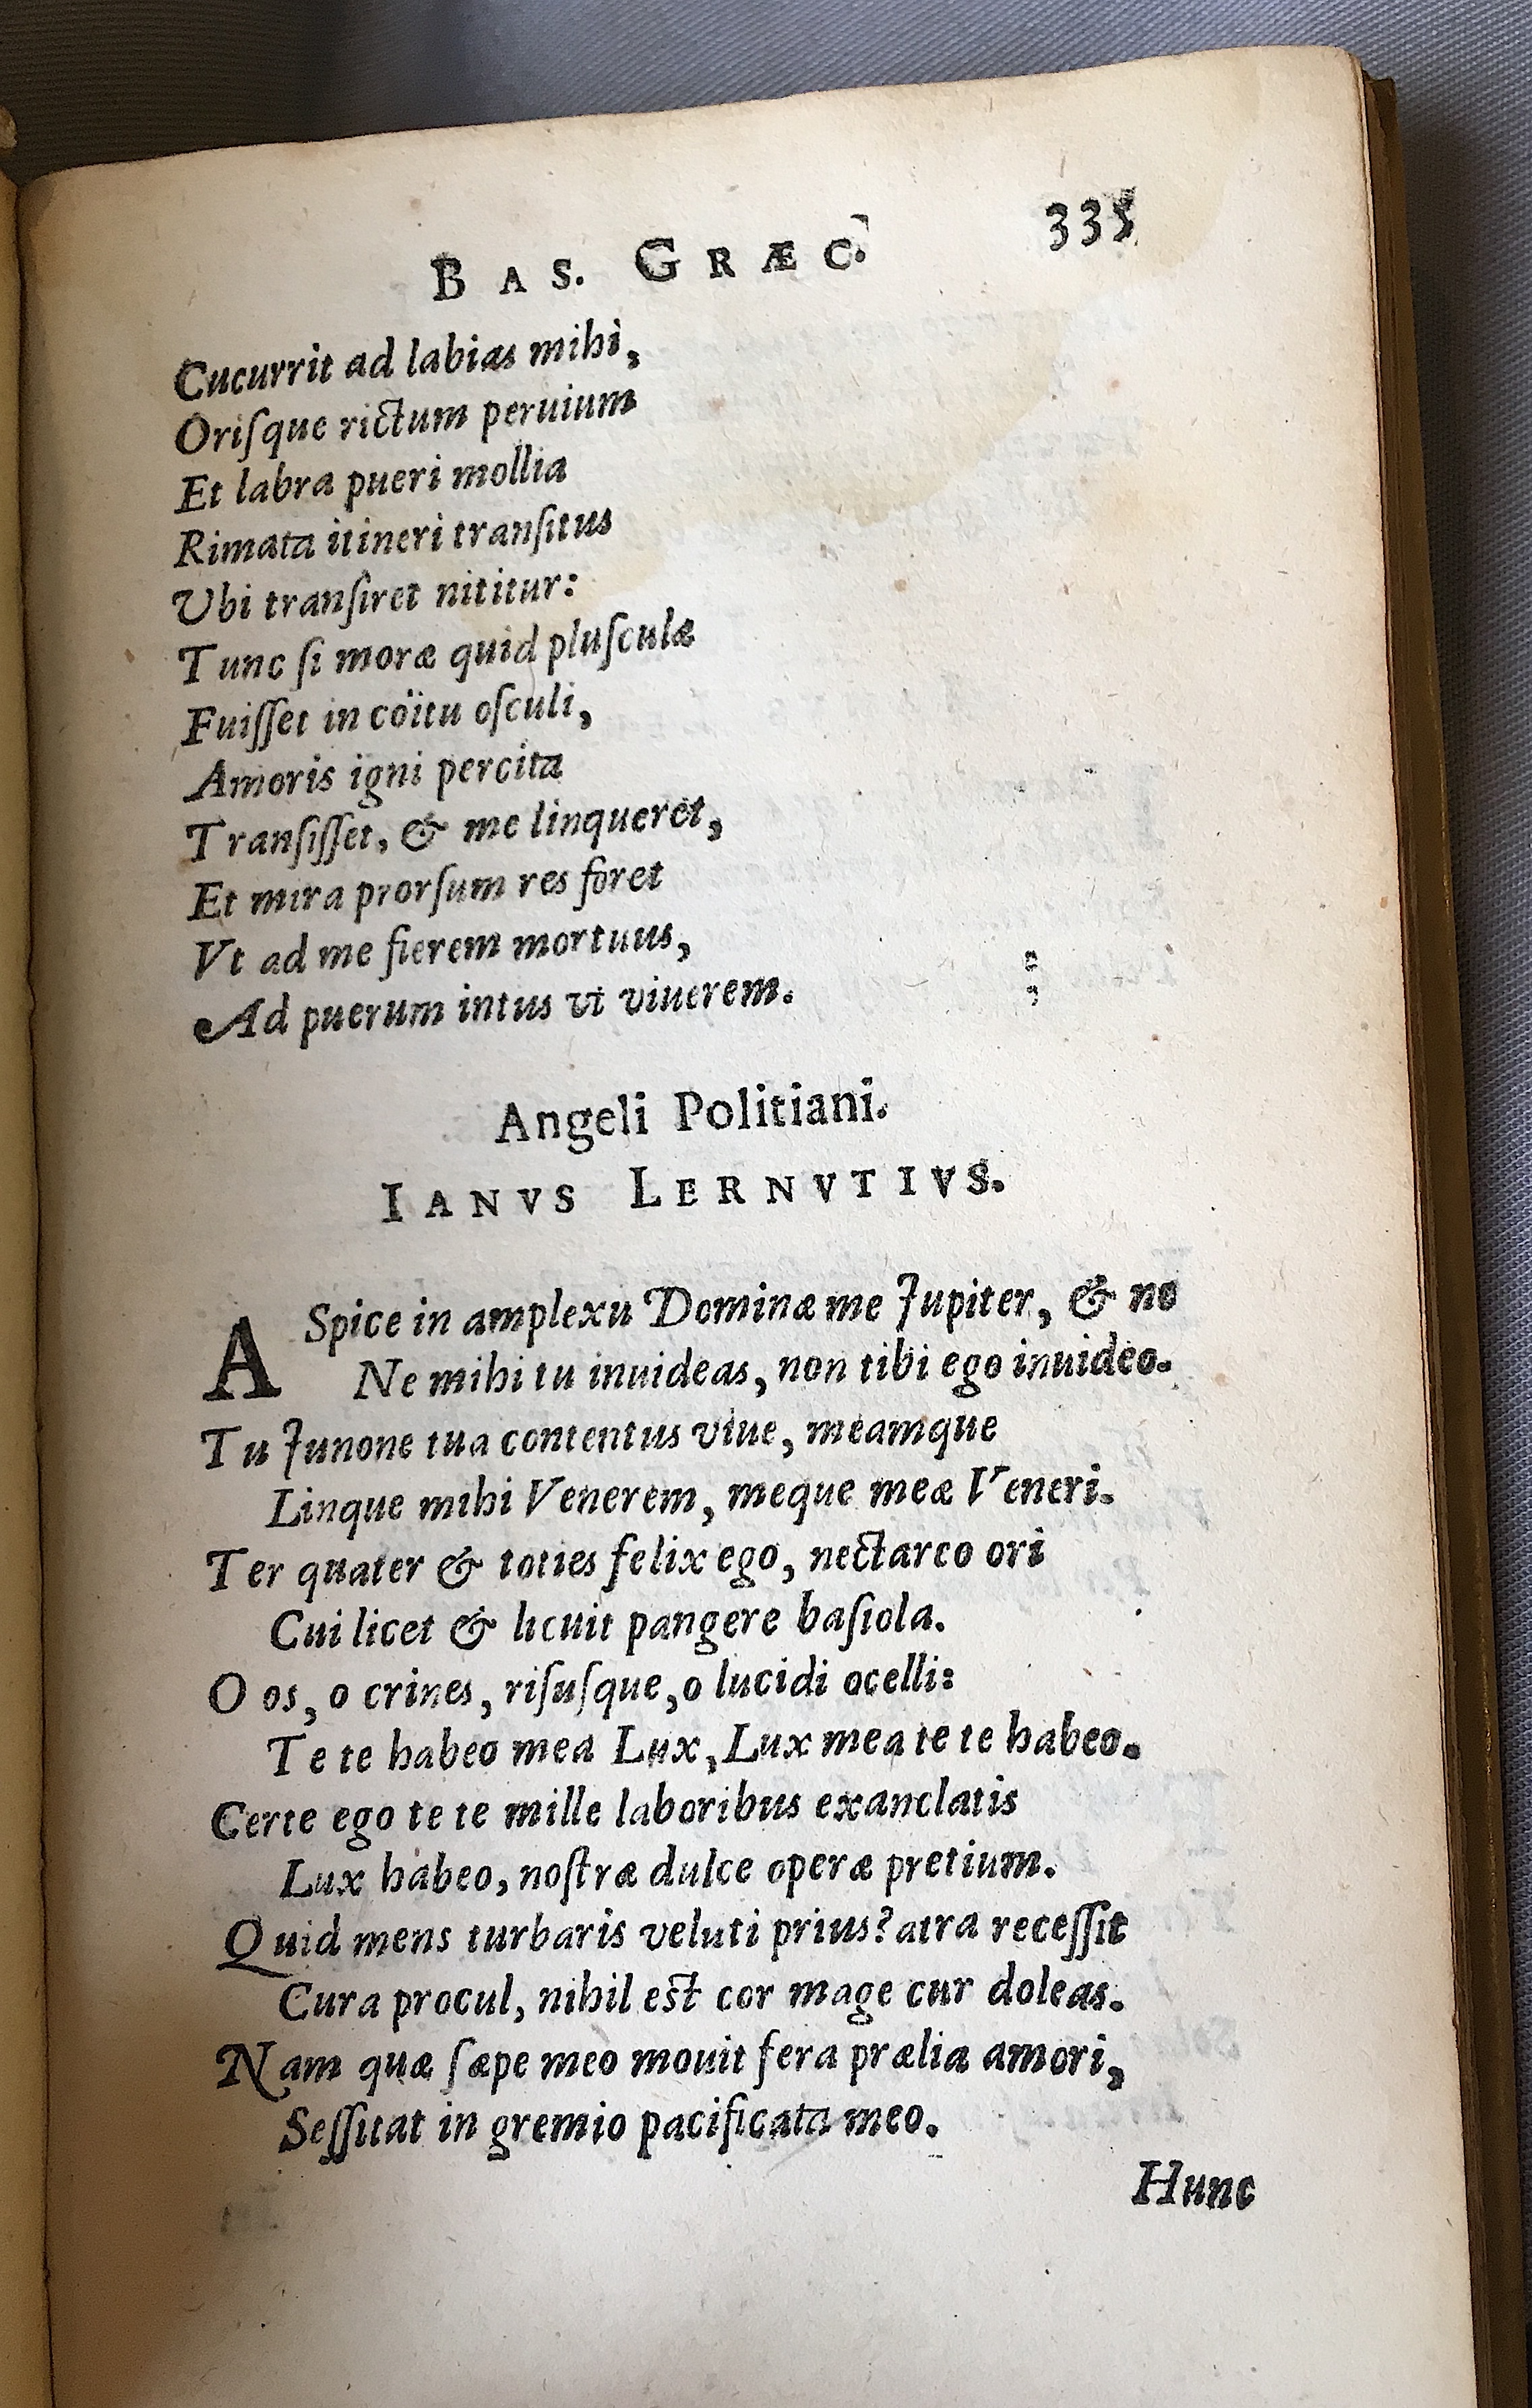 BAS. GRÆC. 335
Cucurrit ad labias mihi,
Oriſque rictum peruium
Et labra pueri mollia
Rimata itineri tranſitus
Vbi tranſiret nititur:
Tunc ſi moræ quid pluſculæ
Fuiſſet in cöitu oſculi,
Amoris igni percita
Tranſiſſet, & me linqueret,
Et mira prorſum res foret
Vt ad me fierem mortuus,
Ad puerum intus vt viuerem.
Angeli Politiani.
IANVS LERNVTIVS.
ASpice in amplexu Dominæ me Jupiter, & ne
Ne mihi tu inuideas, non tibi ego inuideo.
Tu Junone tua contentus viue, meamque
Linque mihi Venerem, meque meæ Veneri.
Ter quater & toties felix ego, nectareo ori
Cui licet & licuit pangere baſiola.
O os, o crines, riſuſque, o lucidi ocelli:
Te te habeo mea Lux, Lux mea te te habeo.
Certe ego te te mille laboribus exanclatis
Lux habeo, noſtræ dulce operæ pretium.
Quid mens turbaris veluti prius? atra receſſit
Cura procul, nihil eſt cor mage cur doleas.
Nam quæ ſæpe meo mouit fera prælia amori,
Seſſitat in gremio pacificata meo.
Hunc